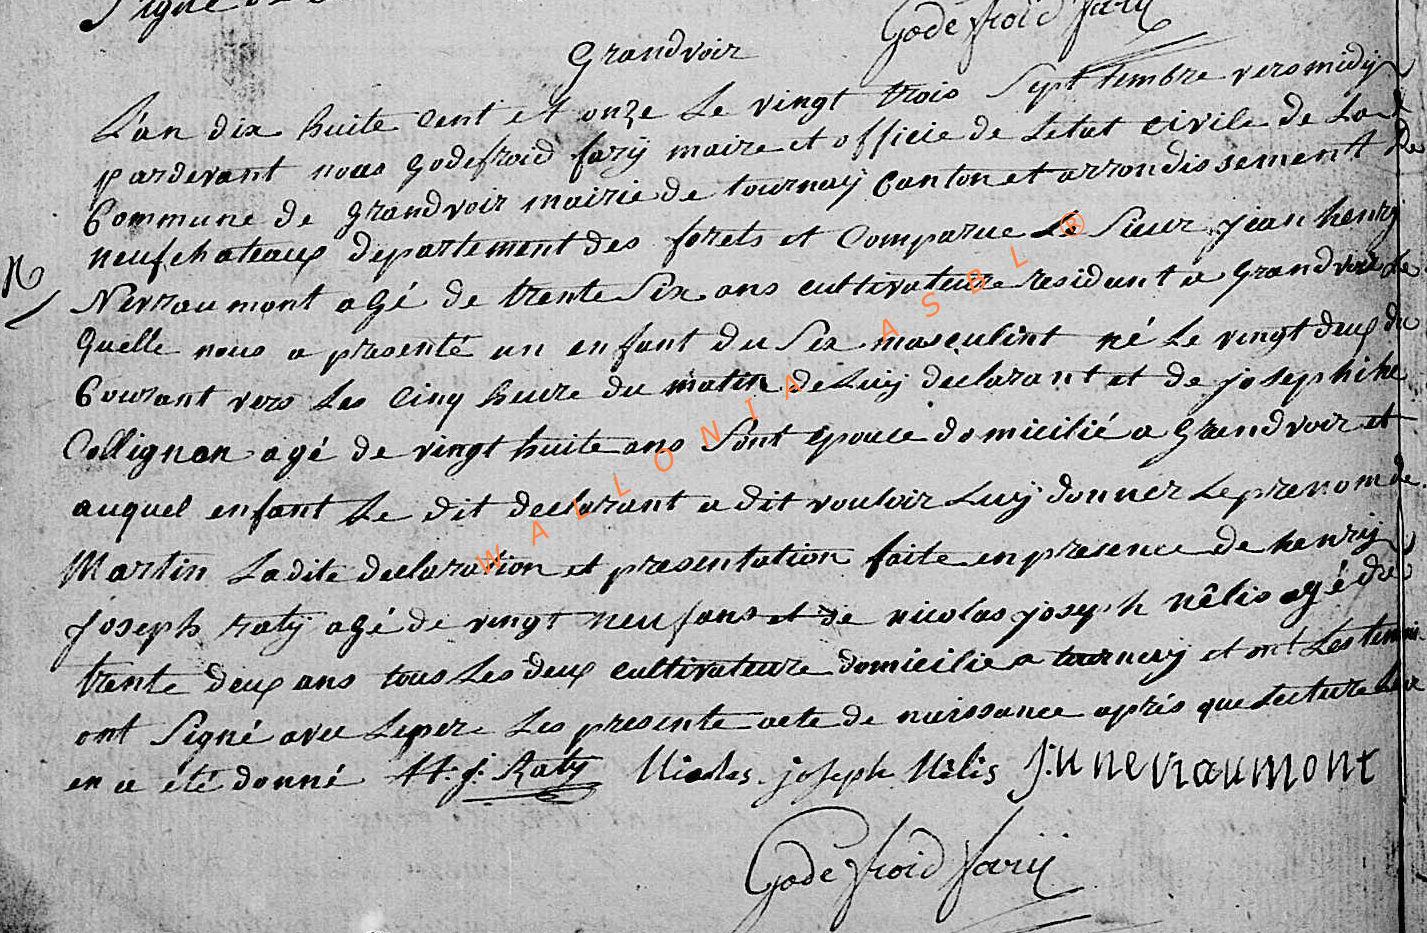 Signé
Godefroid farij
Grandvoir
L'an dix huite cent et onze Le vingt trois Septtembre versmidij
pardevant nous godefroid farij maire et officie de Letat Civile de La
Commune de grandvoir mairie de tournaij Canton et arrondissement De
neufchateaux departement des forets et Comparue Le Sieur jean henrij
N
Nevraumont agé de trente Six ans cultivateure residant a grandvoir Le
quelle nous a presenté un enfant du Sex masculint né Le vingt deux du
Courant vers Les Cinq heure du matin de Luij declarant et de josephine
Collignon agé de vingt huite ans Sont epouce domicilié a grandvoir et
auquel enfant Le dit declarant a dit vouloir Luij donner Leprenom de
Martin Ladite declaration et presentation faite en presence de henrij
joseph ratij agé de vingt neufans et de nicolas joseph nêlis agé de
trente deux ans tous Les deux cultivateure domicilie a tournaij et ont Les temoin
ont Signé avec Lepere Les presente acte de naissance après que Lecture Leur
en a été donné H. j. Raty Nicolas joseph Nélis J: H nevraumont
Godefroid farij
WALLONIA ASBL ®